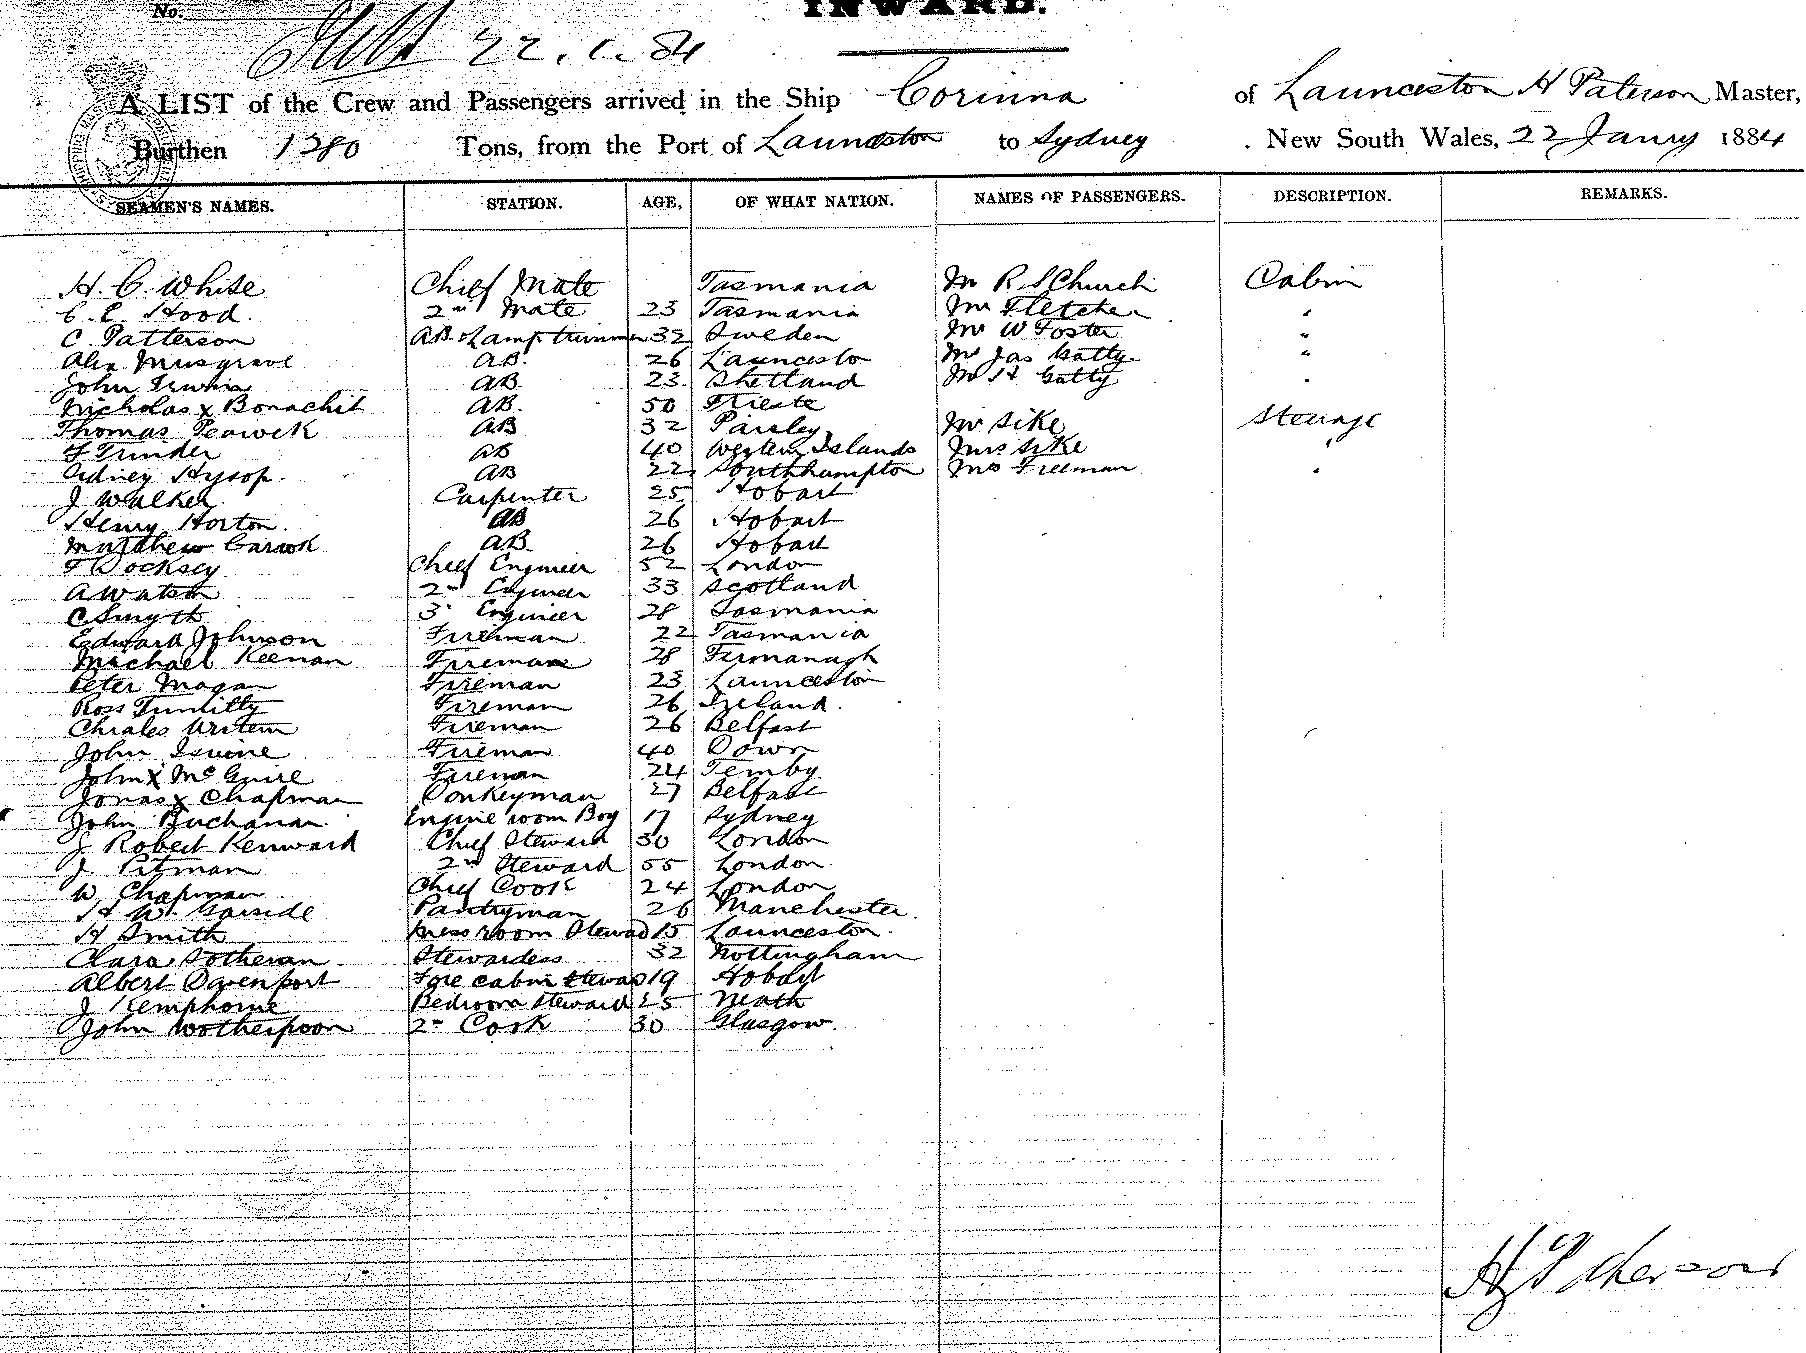 No.
INWARD.
22.1.84
A LIST of the Crew and Passengers arrived in the Ship Corinna of Launceston H Paterson Master,
Burthen 1280 Tons, from the Port of Launceston to Sydney . New South Wales, 22 Janry 1884
SEAMEN'S NAMES. STATION. AGE, OF WHAT NATION. NAMES OF PASSENGERS. DESCRIPTION. REMARKS.
H. C. White Chief Mate Tasmania Mr R S Church Cabin
C. E. Hood. 2nd Mate 23 Tasmania Mr Fletcher "
C Patterson AB. & Lamptrimmer 32 Sweden Mr W Foster "
Alex Musgrave AB. 26 Launcesto Mr Jas Gatty "
John Irwin AB 23 Shetland Mr H Gatty "
Nicholas x Bonachit AB. 50 Trieste
Thomas AB 32 Paisley Mr Sike Steurage
F Trinder AB 40 Western Islands Mrs Sike "
Sidney Hysop. AB 22 Southhampton Mrs Freeman "
J Walker Carpenter 25 Hobart
Henry Horton. AB 26 Hobart
Matthew AB. 26 Hobart
F Docksey Chief Engineer 52 London
A Watson 2nd Engineer 33 Scotland
C Smyth 3d Engineer 28 Tasmania
Edward Johnson Fireman 22 Tasmania
Michael Keenan Fireman 28 Firmanagh
Peter Magan Fireman 23 Launceston
Ross Fireman 26 Ireland.
Chrales Fireman 26 Belfast
John Irvine Fireman 40 Down
John x McGuire Fireman 24 Temby
Jonas x Chapman Donkeyman 27 Belfast
John Buchanan. Engine room Boy 17 Sydney
J Robert Kenward Chief Steward 30 London
J Pitman 2nd Steward 55 London
W Chapman Chief Cook 24 London
H W. Garside Pantryman 26 Manchester.
H Smith Messroom Steward 15 Launceston.
Clara Sotheran Stewardess 32 Nottingham
Albert Davenport Fore cabin Steward 19 Hobart
J Kemphorne Bedroom Steward 25 Neath
John Wotherspoon 2nd Cook 30 Glasgow.